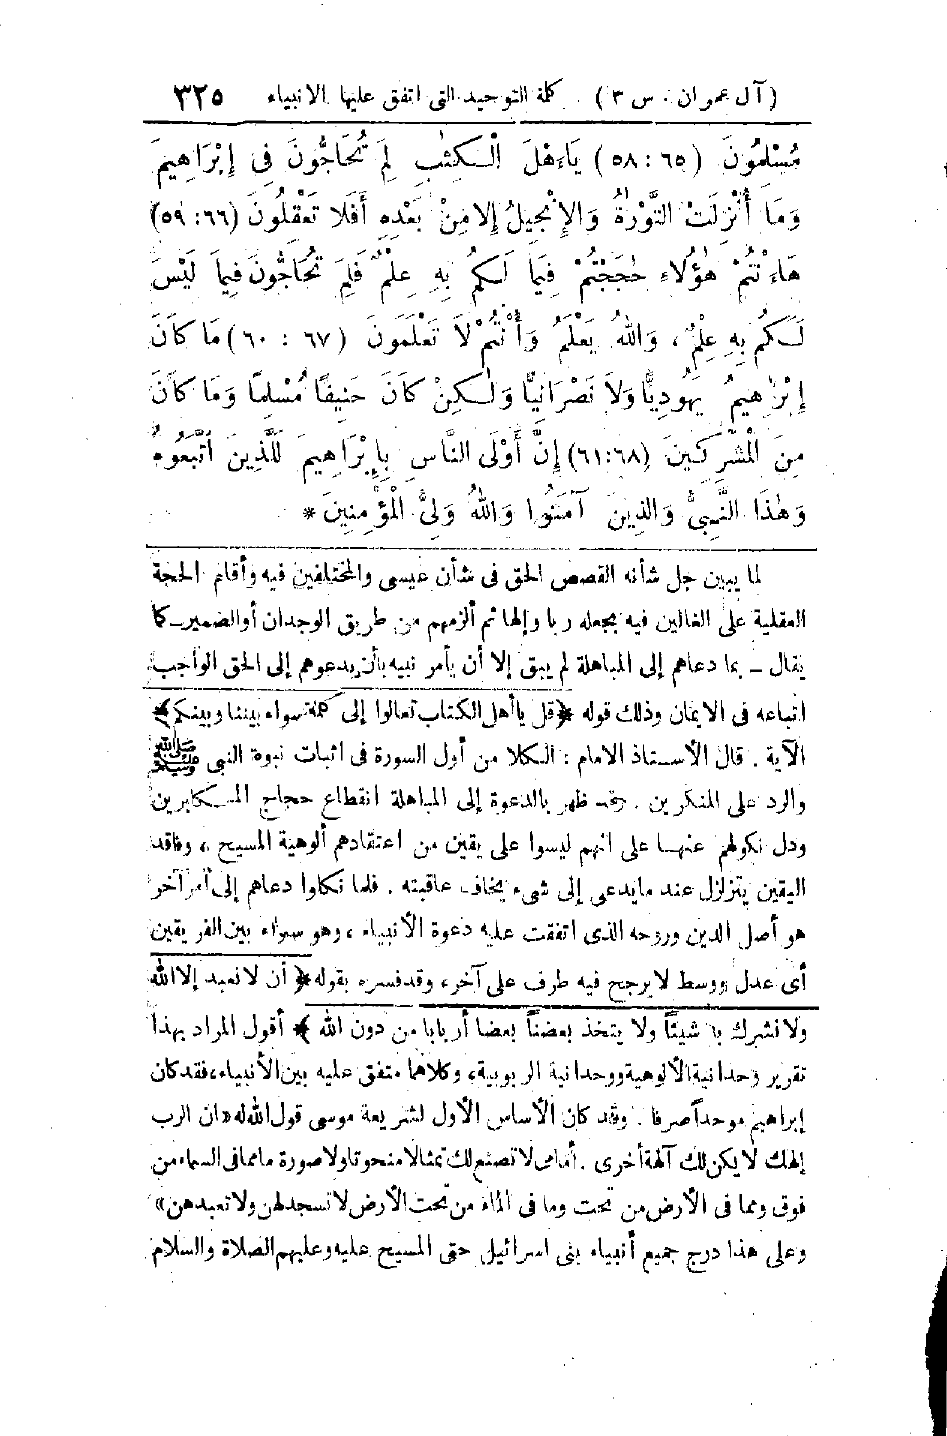 (آل عمران . س ٣) . كلمة التوحيد التى اتفق عليها الانبياء ٣٢٥
مُسْلِمُونَ (٥٨:٦٥) يَاءَهْلَ الْكِتٰبِ لِمَ تُحَاجُّونَ فِى إِبْرَاهِيمَ
وَمَا أُنْزِلَتْ التَّوْرٰةُ وَالإِنْجِيلُ إِلا مِنْ بَعْدِهِ أَفَلا تَعْقِلُونَ (٥٩:٦٦)
هَاءَنْتُمْ هٰؤُلَاءِ حٰجَجْتُمْ فِيمَا لَكُمْ بِهِ عِلْمٌ فَلِمَ تُحَاجُّونَ فِيمَا لَيْسَ
لَكُمْ بِهِ عِلْمٌ ، وَاللهُ يَعْلَمُ وَأَنْتُمْ لَا تَعْلَمُونَ (٦٧ : ٦٠) مَا كَانَ
إِبْرٰهِيمُ يَهُودِيًّا وَلَا نَصْرَانِيًّا وَلٰكِنْ كَانَ حَنِيفًا مُسْلِمًا وَمَا كَانَ
مِنَ الْمُشْرِكِينَ (٦١:٦٨) إِنَّ أَوْلَى النَّاسِ بِإِبْرَاهِيمَ لَلَّذِينَ اتَّبَعُوهُ
وَهٰذَا النَّبِيُّ وَالذِينَ آمَنُوا وَاللهُ وَلِيُّ الْمُؤْمِنِينَ *
لما يبين جل شأنه القصص الحق فى شأن عيسى والمختلفين فيه وأقام الحجة
العقلية على الغالين فيه بجعله ربا وإلها ثم ألزمهم من طريق الوجدان أو الضمير ــ كما
يقال ــ بما دعاهم إلى المباهلة لم يبق إلا أن يأمر نبيه بأن يدعوهم إلى الحق الواجب
اتباعه فى الايمان وذلك قوله ﴿ قل يا أهل الكتاب تعالوا إلى كلمة سواء بيننا وبينكم ﴾
الآية . قال الأستاذ الامام : الكلام من أول السورة فى اثبات نبوة النبى ﷺ
والرد على المنكرين . وقد ظهر بالدعوة إلى المباهلة انقطاع حجاج المكابرين
ودل نكولهم عنها على انهم ليسوا على يقين من اعتقادهم ألوهية المسيح ، وفاقد
اليقين يتزلزل عند ما يدعى إلى شىء يخاف عاقبته . فلما نكلوا دعاهم إلى أمر آخر
هو أصل الدين وروحه الذى اتفقت عليه دعوة الأنبياء ، وهو سواء بين الفريقين
أى عدل ووسط لا يرجح فيه طرف على آخر ، وقد فسره بقوله ﴿ أن لا نعبد إلا الله
ولا نشرك به شيئاً ولا يتخذ بعضناً بعضا أربابا من دون الله ﴾ أقول المراد بهذا
تقرير وحدانية الألوهية ووحدانية الربوبية ، وكلاهما متفق عليه بين الأنبياء ، فقد كان
إبراهيم موحداً صرفا . وقد كان الأساس الأول لشريعة موسى قول الله له « ان الرب
إلهك لا يكن لك آلهة أخرى . أمامى لا تصنع لك تمثالا منحوتا ولا صورة ما مما فى السماء من
فوق ومما فى الأرض من تحت وما فى الماء من تحت الأرض لا تسجد لهن ولا تعبدهن »
وعلى هذا درج جميع أنبياء بنى اسرائيل حتى المسيح عليه وعليهم الصلاة والسلام